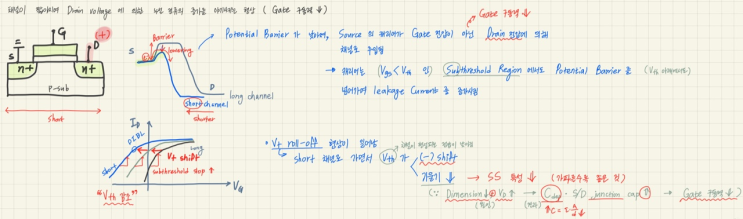 채널이 짧아지며 Drain voltage 에 의한 누설 전류의 증가로 이어지는 현상 ( Gate 구동력 ↓ )
G
(+)
S
D
n+
n+
p-sub
short
Barrier
lowering
S
D
long channel
short channel
shorter
Potential Barrier 가 낮아져, Source 의 캐리어가 Gate 전압이 아닌 Drain 전압에 의해
채널로 주입됨
Gate 구동력 ↓
→ 캐리어는 (Vgs < Vth 인) Subthreshold Region 에서도 Potential Barrier 를 (Vth 아래에서도)
넘어가며 leakage Current 를 증가시킴
ID
DIBL
long
short
Vt shift
subthreshold slop ↑
VG
"Vth 감소"
* Vt roll-off 현상이 일어남
short 채널로 가면서 Vth 가
(-) shift
기울기 ↓ → SS 특성 ↓ (가파를수록 좋은 것)
(∵ Dimension ↓ VD ↑ → Cdep · S/D junction cap → Gate 구동력 ↓ )